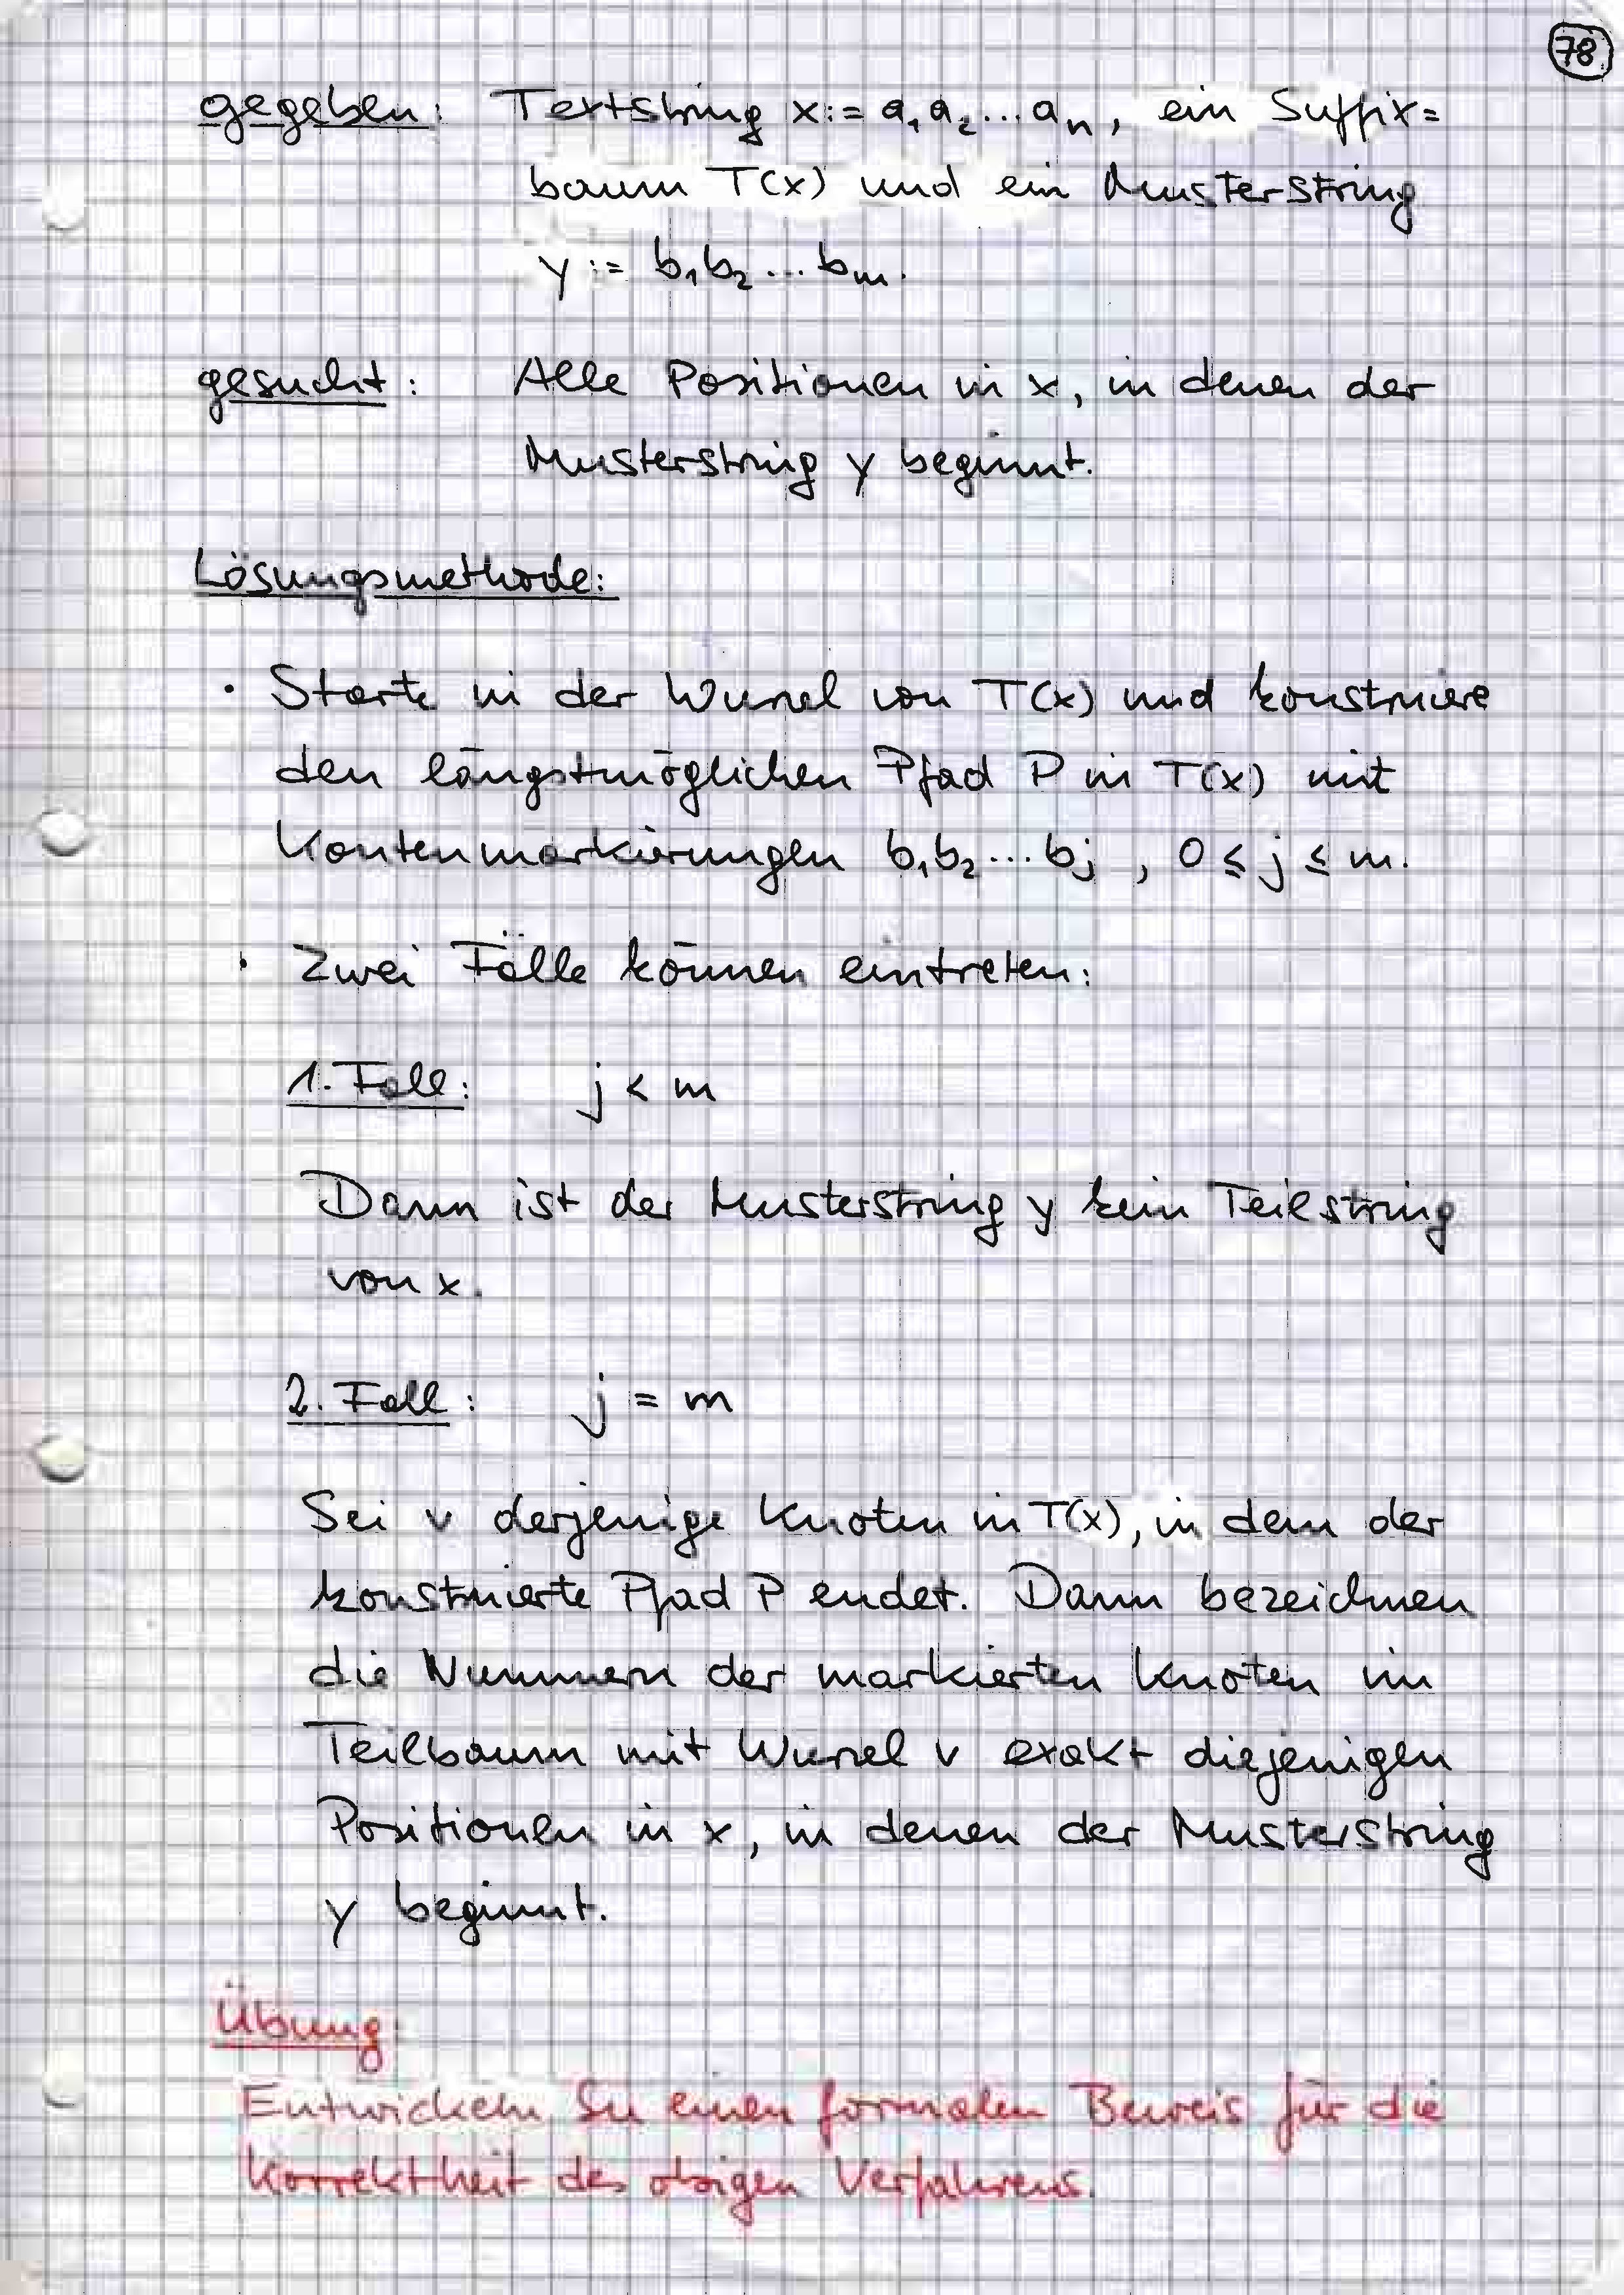 78
gegeben: Textstring x := a₁a₂...aₙ, ein Suffix=
baum T(x) und ein Musterstring
y := b₁b₂...bₘ.
gesucht: Alle Positionen in x, in denen der
Musterstring y beginnt.
Lösungsmethode:
• Starte in der Wurzel von T(x) und konstruiere
den längstmöglichen Pfad P in T(x) mit
Kontenmarkierungen b₁b₂...bⱼ, 0 ≤ j ≤ m.
• Zwei Fälle können eintreten:
1. Fall: j < m
Dann ist der Musterstring y kein Teilstring
von x.
2. Fall: j = m
Sei v derjenige Knoten in T(x), in dem der
konstruierte Pfad P endet. Dann bezeichnen
die Nummern der markierten Knoten im
Teilbaum mit Wurzel v exakt diejenigen
Positionen in x, in denen der Musterstring
y beginnt.
Übung:
Entwickeln Sie einen formalen Beweis für die
Korrektheit des obigen Verfahrens.